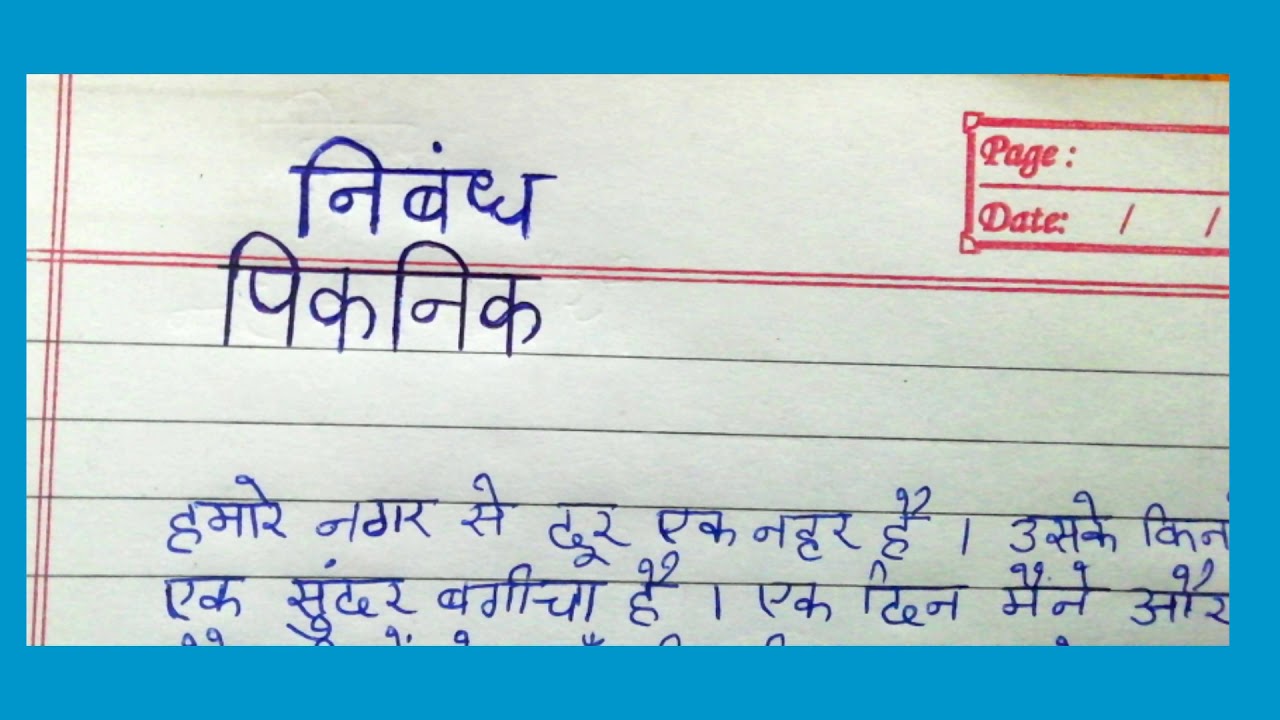 निबंध
पिकनिक
Page :
Date: / /
हमारे नगर से दूर एक नहर है ।  उसके
एक सुंदर बगीचा है । एक दिन मैंने और